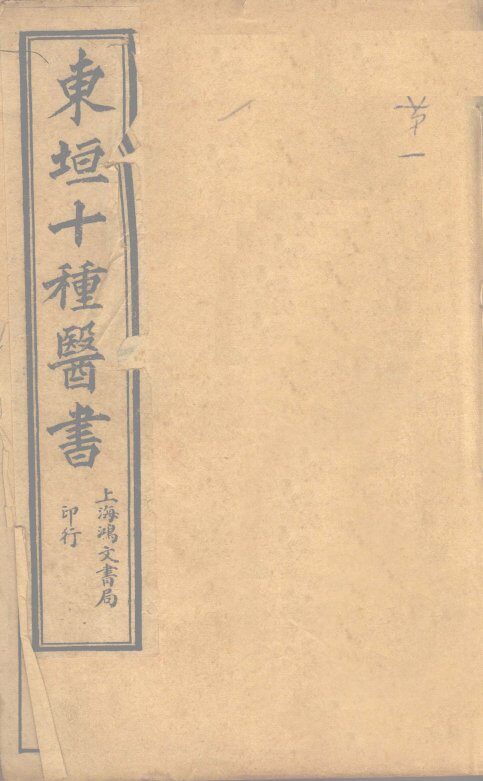 第一
東垣十種醫書
上海鴻文書局
印行